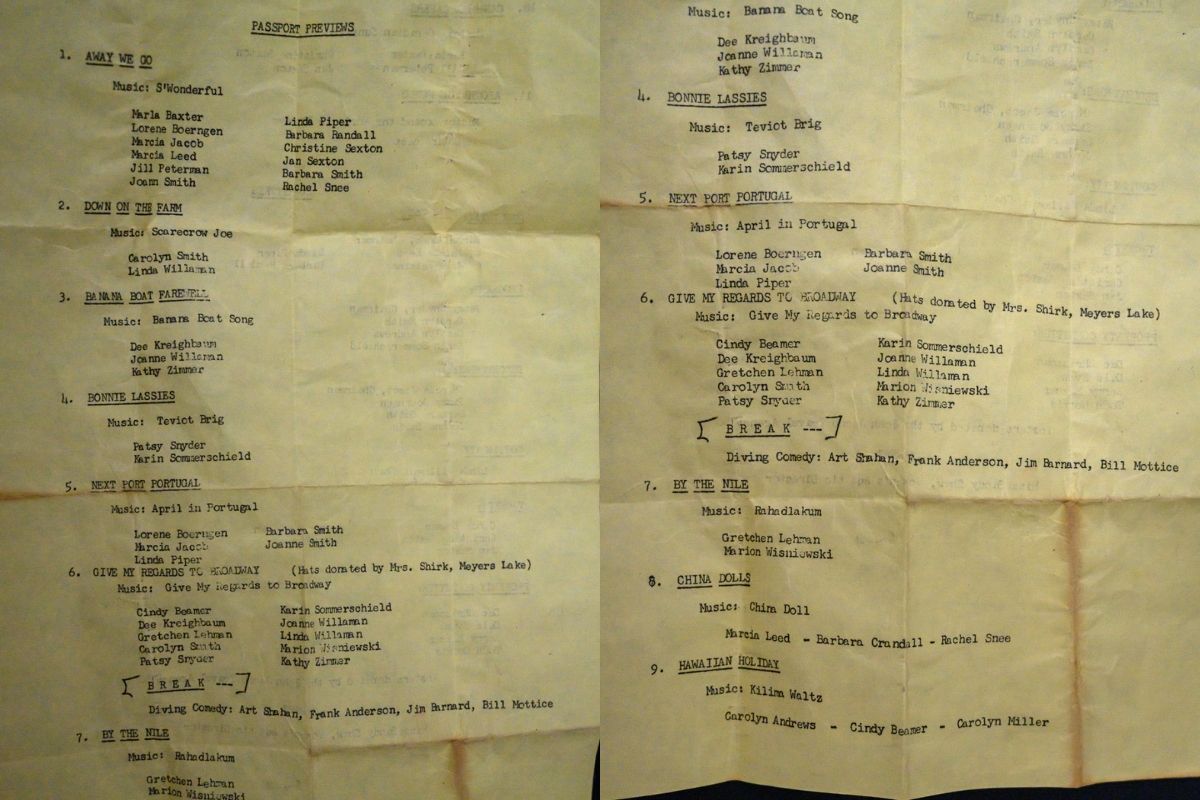 PASSPORT PREVIEWS
1. AWAY WE GO
Music: S'Wonderful
Marla Baxter Linda Piper
Lorene Boerngen Barbara Randall
Marcia Jacob Christine Sexton
Marcia Leed Jan Sexton
Jill Peterman Barbara Smith
Joann Smith Rachel Snee
2. DOWN ON THE FARM
Music: Scarecrow Joe
Carolyn Smith
Linda Willaman
3. BANANA BOAT FAREWELL
Music: Banana Boat Song
Dee Kreighbaum
Joanne Willaman
Kathy Zimmer
4. BONNIE LASSIES
Music: Teviot Brig
Patsy Snyder
Karin Sommerschield
5. NEXT PORT PORTUGAL
Music: April in Portugal
Lorene Boerngen Barbara Smith
Marcia Jacob Joanne Smith
Linda Piper
6. GIVE MY REGARDS TO BROADWAY (Hats donated by Mrs. Shirk, Meyers Lake)
Music: Give My Regards to Broadway
Cindy Beamer Karin Sommerschield
Dee Kreighbaum Joanne Willaman
Gretchen Lehman Linda Willaman
Carolyn Smith Marion Wisniewski
Patsy Snyder Kathy Zimmer
[ B R E A K --- ]
Diving Comedy: Art Shahan, Frank Anderson, Jim Barnard, Bill Mottice
7. BY THE NILE
Music: Rahadlakum
Gretchen Lehman
Marion Wisniowski
Music: Banana Boat Song
Dee Kreighbaum
Joanne Willaman
Kathy Zimmer
4. BONNIE LASSIES
Music: Teviot Brig
Patsy Snyder
Karin Sommerschield
5. NEXT PORT PORTUGAL
Music: April in Portugal
Lorene Boerngen Barbara Smith
Marcia Jacob Joanne Smith
Linda Piper
6. GIVE MY REGARDS TO BROADWAY (Hats donated by Mrs. Shirk, Meyers Lake)
Music: Give My Regards to Broadway
Cindy Beamer Karin Sommerschield
Dee Kreighbaum Joanne Willaman
Gretchen Lehman Linda Willaman
Carolyn Smith Marion Wisniewski
Patsy Snyder Kathy Zimmer
[ B R E A K --- ]
Diving Comedy: Art Shahan, Frank Anderson, Jim Barnard, Bill Mottice
7. BY THE NILE
Music: Rahadlakum
Gretchen Lehman
Marion Wisniowski
8. CHINA DOLLS
Music: China Doll
Marcia Leed - Barbara Crandall - Rachel Snee
9. HAWAIIAN HOLIDAY
Music: Kilima Waltz
Carolyn Andrews - Cindy Beamer - Carolyn Miller